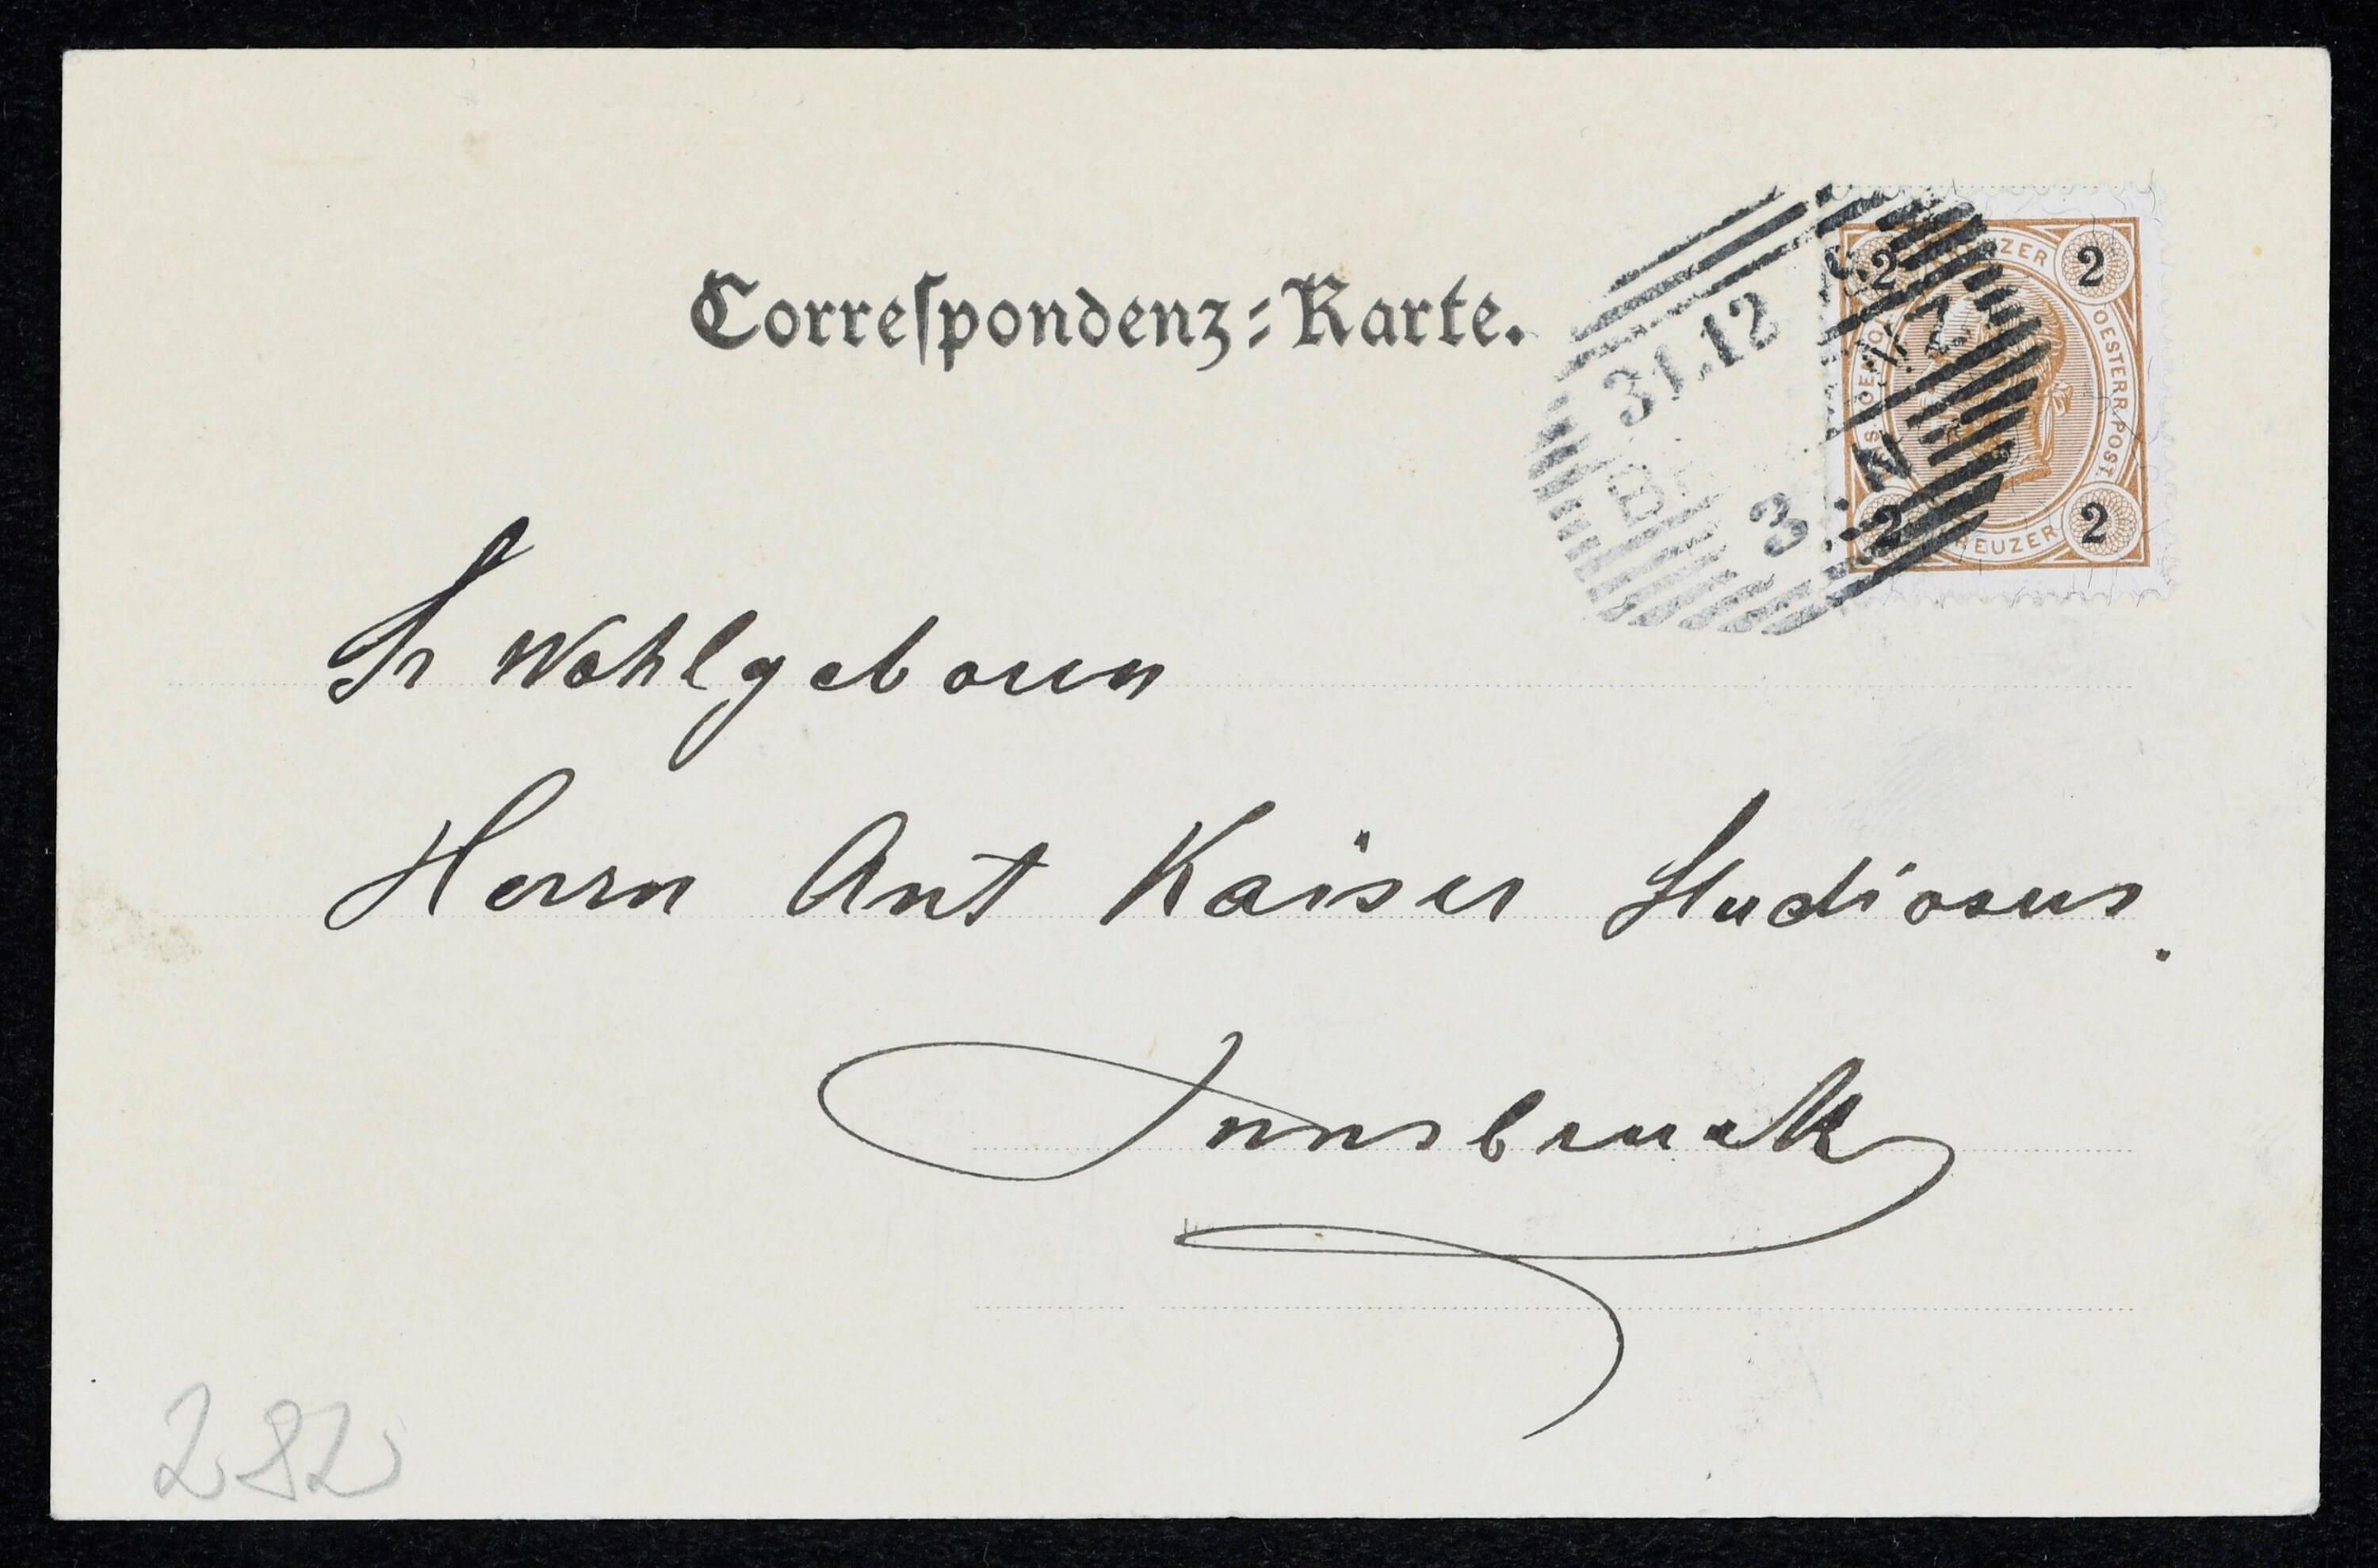 Correspondenz-Karte.
2 KREUZER 2
OESTERR. POST.
31.12
3 . N
2 KREUZER 2
Sr Wohlgeboren
Herrn Ant Kaiser Studiosus.
Innsbruck
282